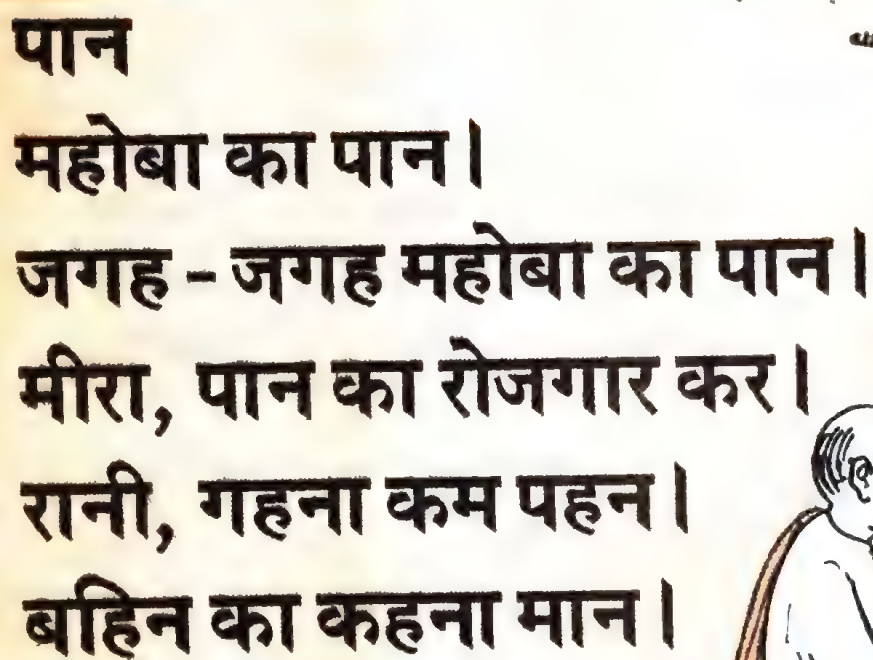 पान
महोबा का पान।
जगह - जगह महोबा का पान।
मीरा, पान का रोजगार कर।
रानी, गहना कम पहन।
बहिन का कहना मान।